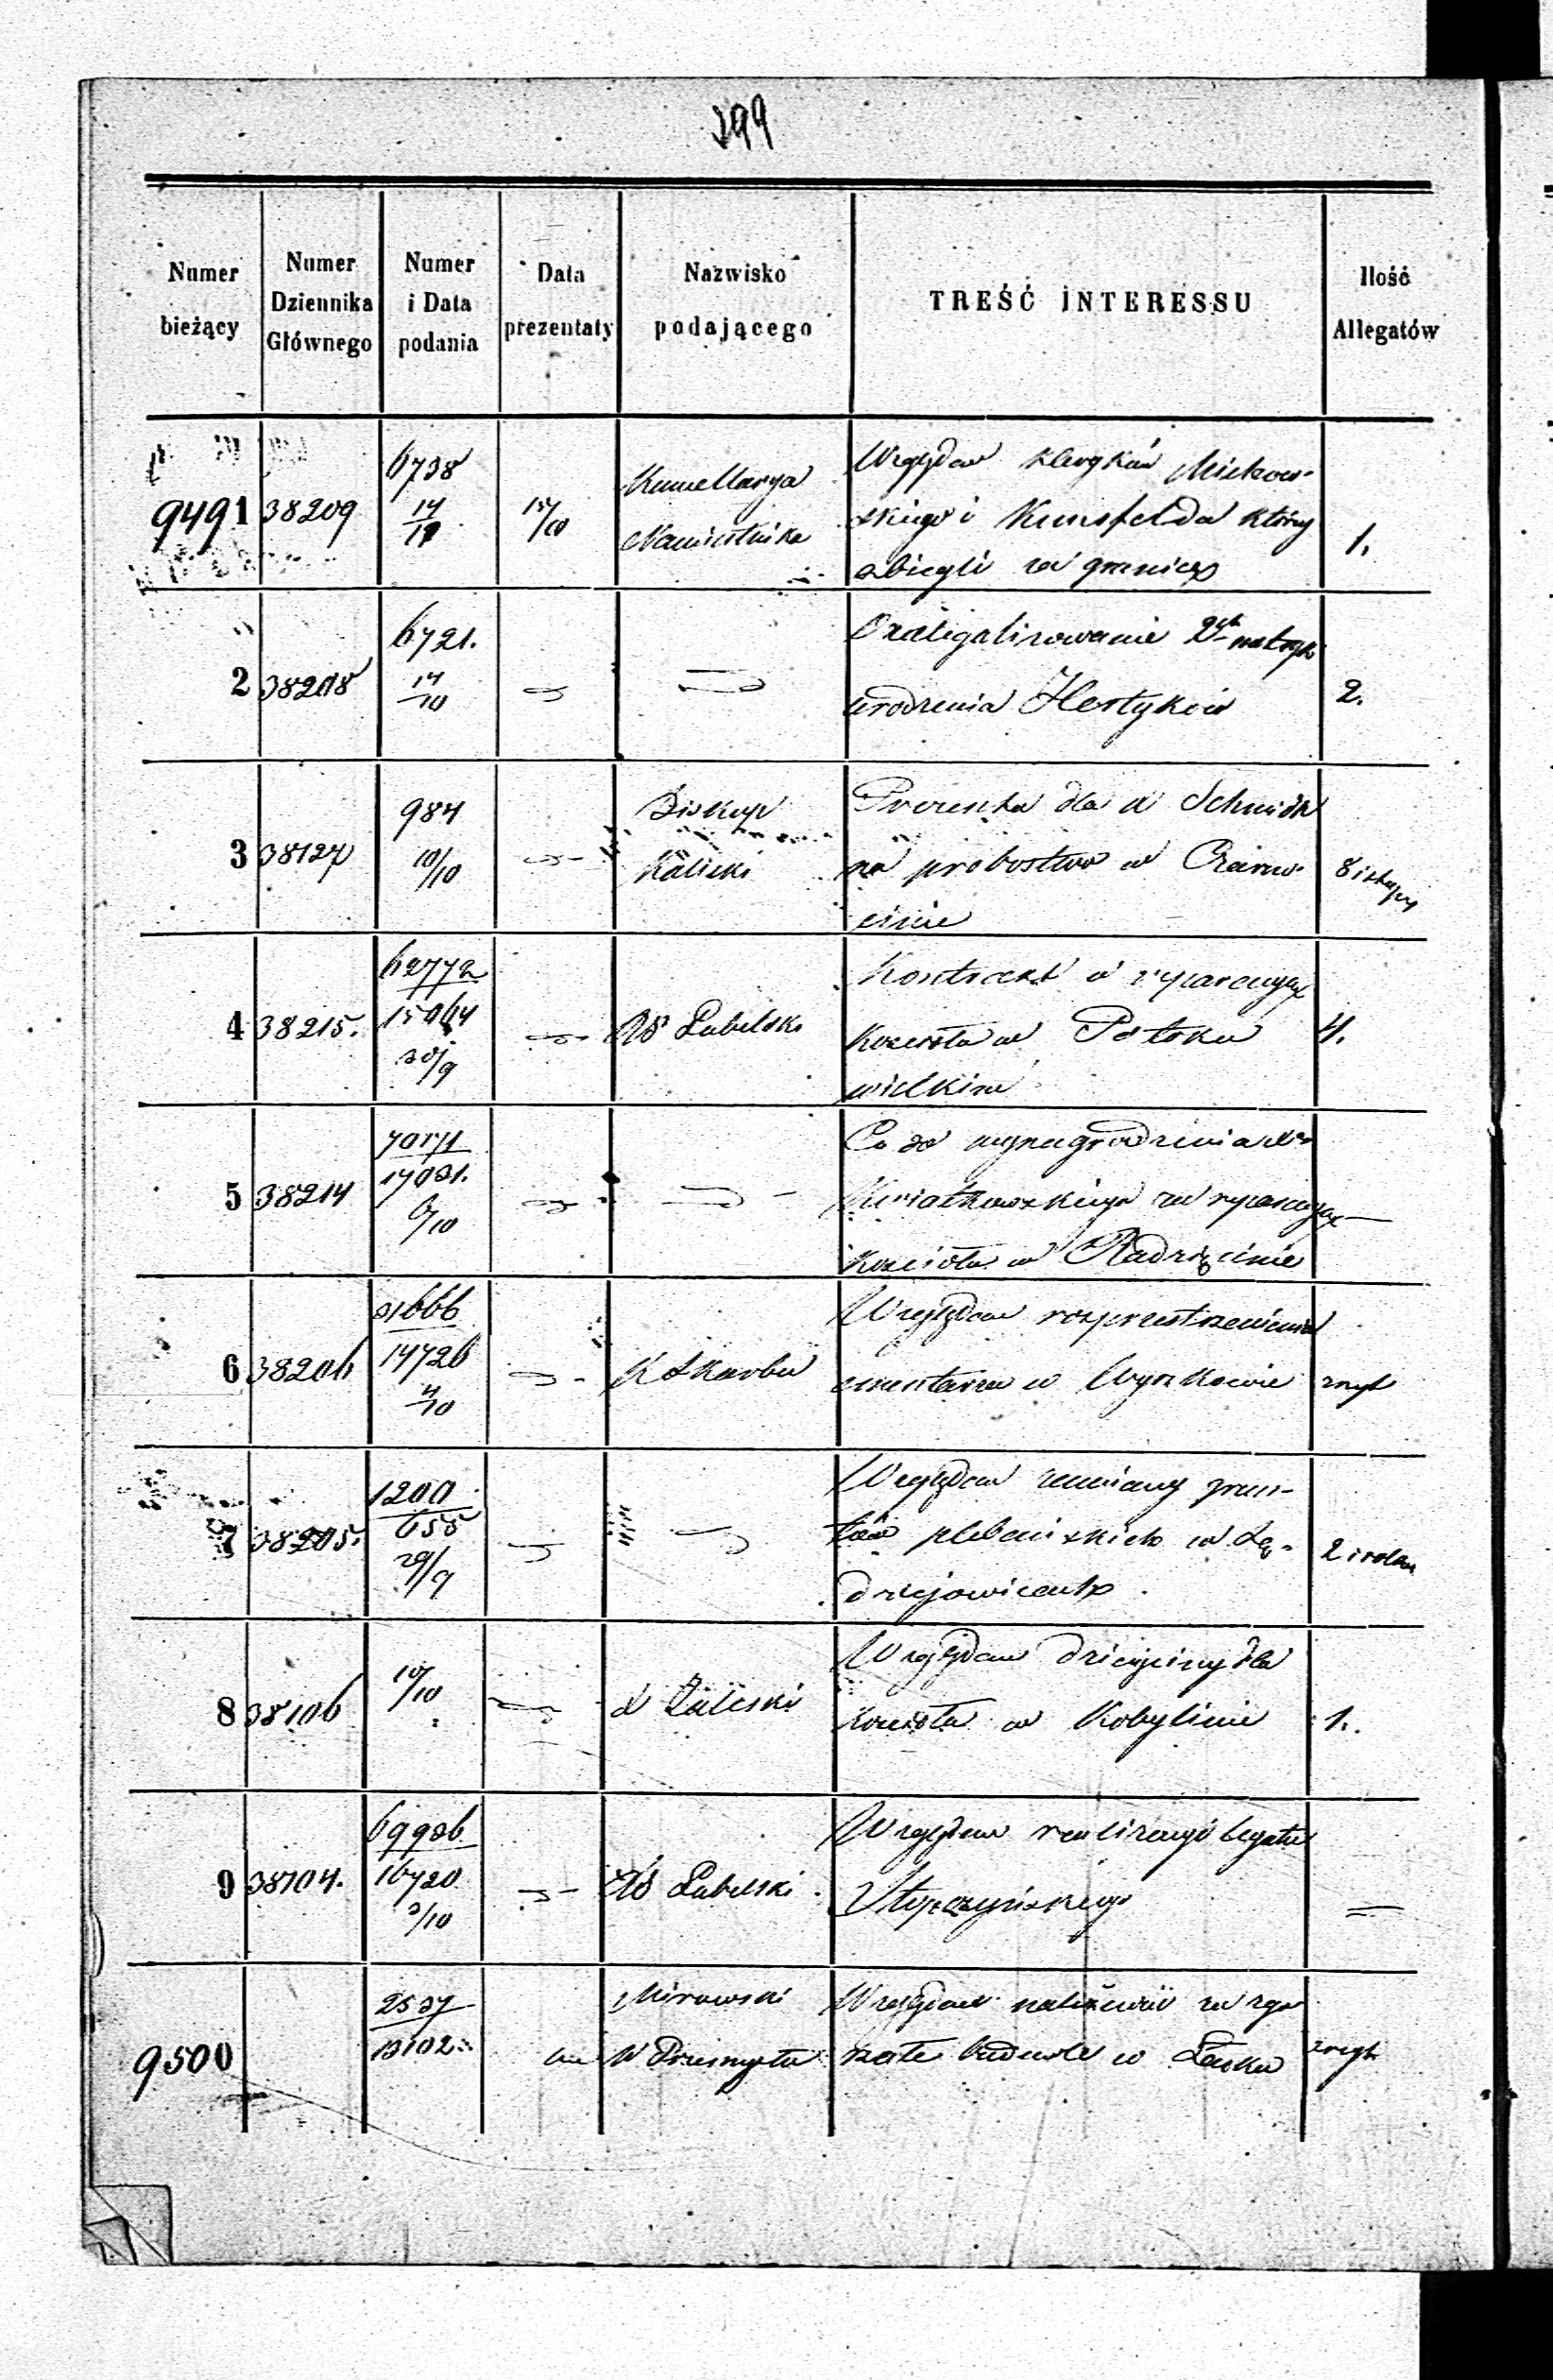 399
Numer bieżący | Numer Dziennika Głównego | Numer i Data podania | Data prezentaty | Nazwisko podającego | TREŚĆ INTERESSU | Ilość Allegatów
9491 | 38209 | 6738 14/10 | 15/10 | Kancellarya Namiestnika | Względem kleryków Mickow-
skiego i Kunsfelda którzy
zbiegli za granicę | 1.
2 | 38208 | 6721. 14/10 | — | — | Zalegalizowanie 2ch metryk
urodzenia Hertyków | 2.
3 | 38127 | 984 10/10 | — | Biskup Kaliski | Prezenta dla X Schmidt
na probostwo w Czarno-
cinie | 8 i
4 | 38215. | 62772 15064 30/9 | — | RG Lubelski | Kontrakt o reparacyę
kościoła w Potoku
wielkim | 4.
5 | 38214 | 14031. 6/10 | — | — | Co do wynagrodzenia
Kwiatkowskiego za reparacyę
kościoła w Radzięcinie | —
6 | 38206 | 31666 14726 4/10 | — | K Skarbu | Względem rozprzestrzenienia
cmentarza w Wyszkowie | zwyt
7 | 38205. | 1200 655 29/9 | — | — | Względem zamiany grun-
tów plebańskich w Lę-
dziejowicach | 2 i
8 | 38106 | 10/10 | — | X Zaleski | Względem dziesięciny dla
kościoła w Kobylinie | 1.
9 | 38104. | 69936 16720 3/10 | — | RG Lubelski | Względem realizacyi legatu
Stopczyńskiego | =
9500 | 2537 13102 | Mirowski
w Przemyślu | Względem należności za
zajęte budowle w Łasku | zwyt